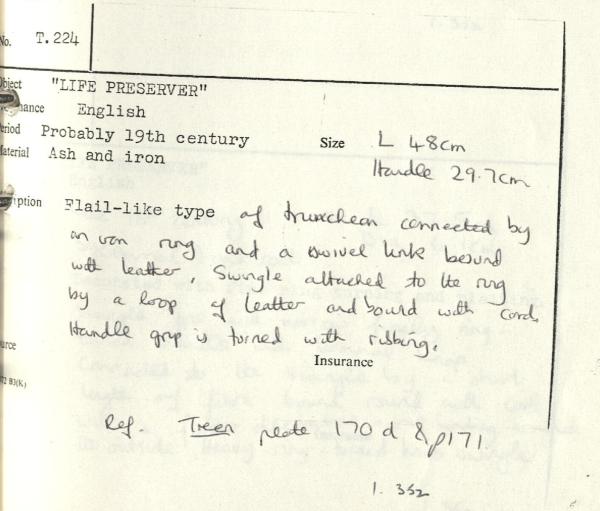 No. T.224
Object "LIFE PRESERVER"
nance English
Period Probably 19th century Size L 48cm
Material Ash and iron Handle 29.7cm
iption Flail-like type of truncheon connected by
an iron ring and a swivel link bound
with leather, Swingle attached to the ring
by a loop of leather and bound with cord.
Handle grip is turned with ribbing.
urce
Insurance
72 B3(K)
Ref. Treen plate 170 d & p171.
1. 332